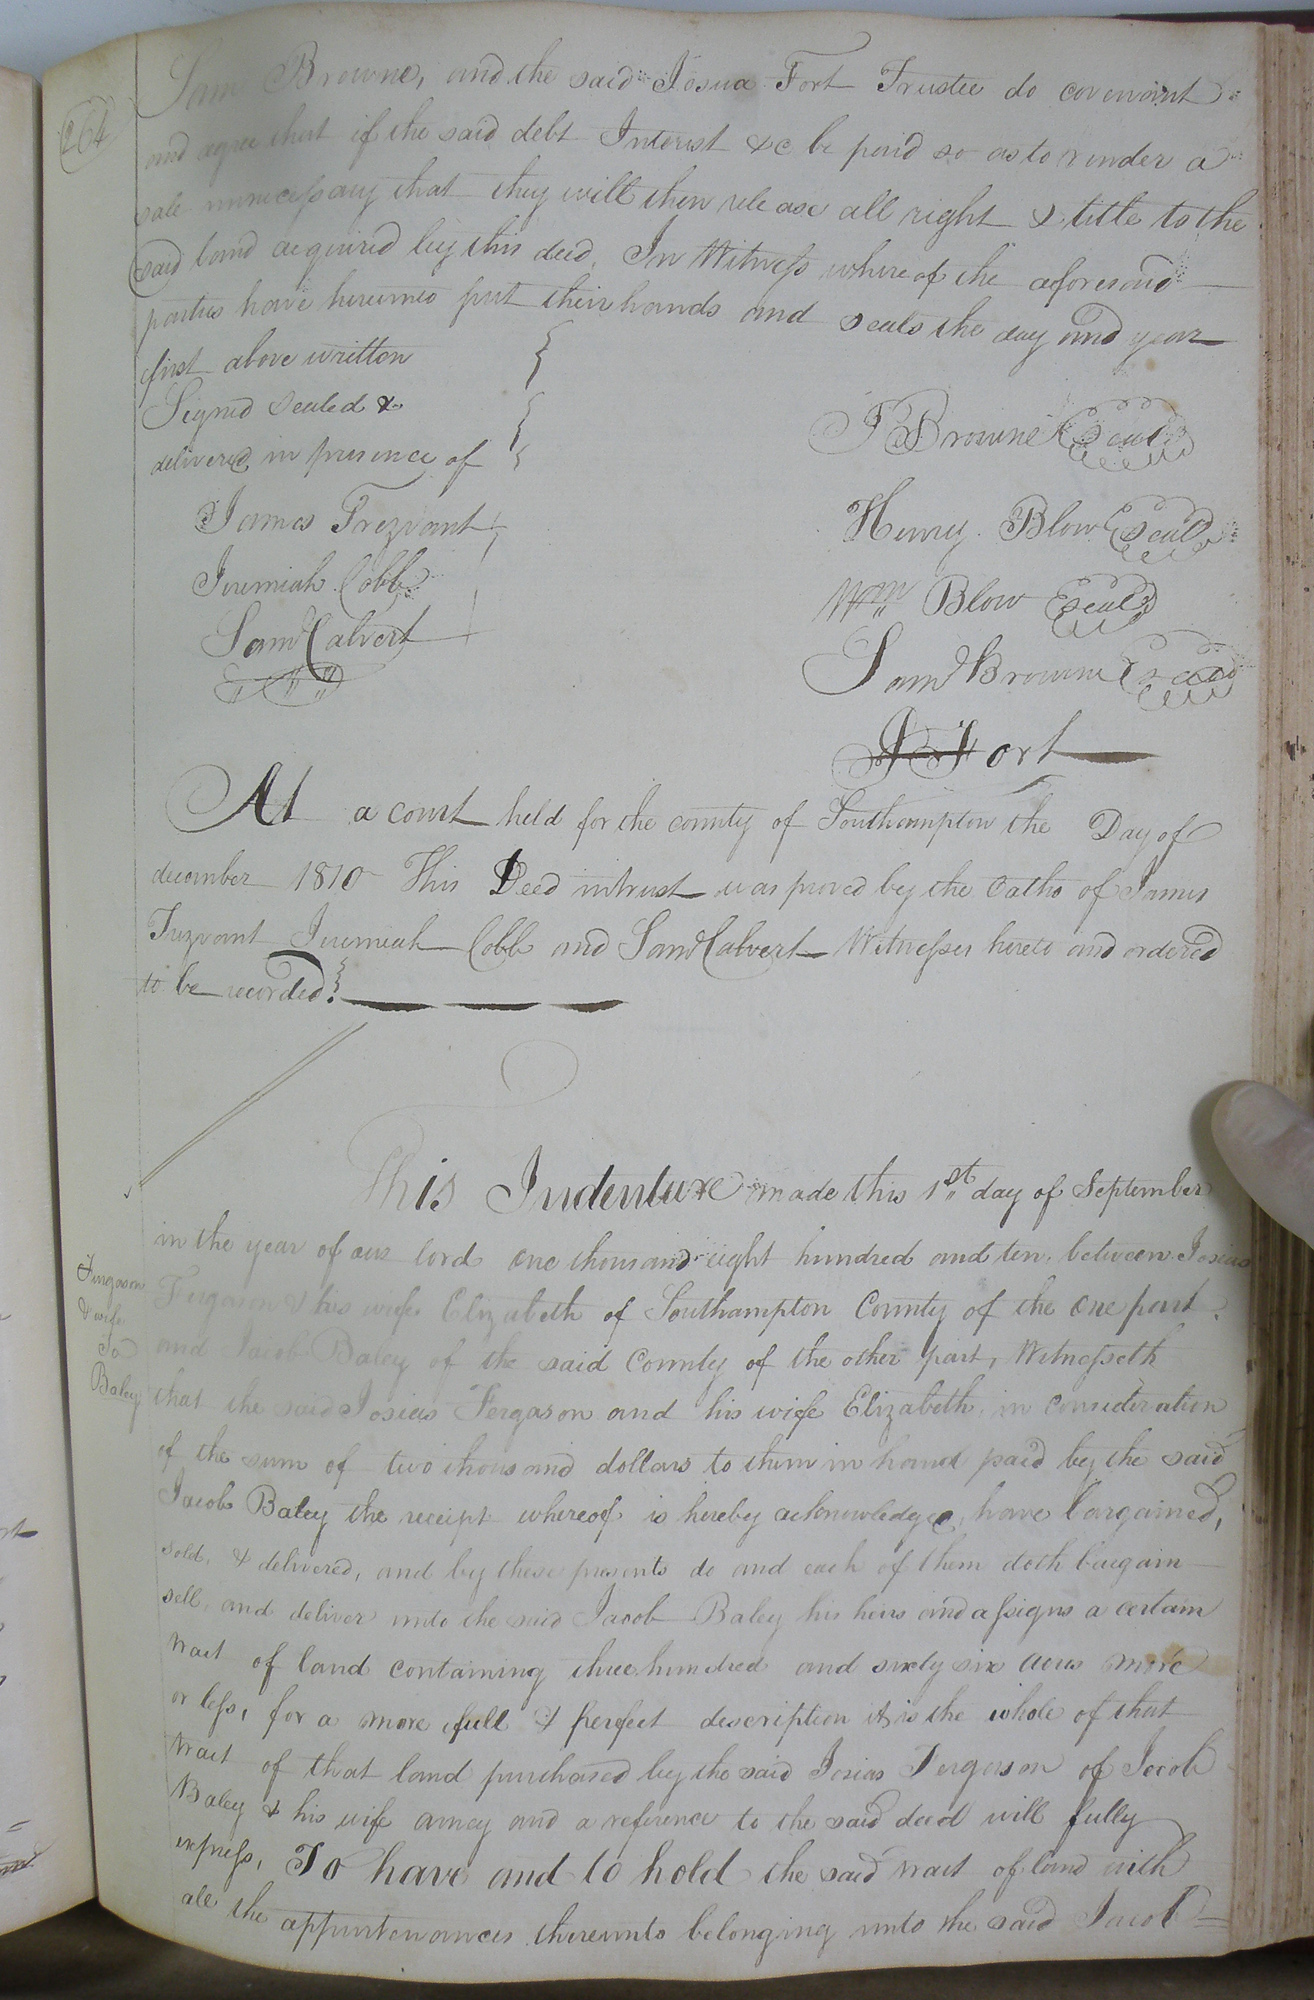 264
Sam Browne, and the said Josua Fort Trustee do covenant
and agree that if the said debt Interest &c be paid so as to render a
sale unnecessary that they will then release all right & title to the
said land acquired by this deed. In Witness whereof the aforesaid
parties have hereunto put their hands and seals the day and year
first above written
Signed sealed &
delivered in presence of
James Trezvant
Jeremiah Cobb
Saml Calvert
T Browne Seal
Henry Blow Seal
Wm Blow Seal
Saml Browne Seal
J Fort
At a court held for the county of Southampton the Day of
december 1810 This Deed intrust was proved by the Oaths of James
Trezvant Jeremiah Cobb and Saml Calvert Witnesses hereto and ordered
to be recorded.
This Indenture made this 1st day of September
in the year of our lord one thousand eight hundred and ten between Josias
Fergason & his wife Elizabeth of Southampton County of the one part
and Jacob Baley of the said County of the other part, Witnesseth
that the said Josias Fergason and his wife Elizabeth in consideration
of the sum of two thousand dollars to them in hand paid by the said
Jacob Baley the receipt whereof is hereby acknowledge, have bargained,
sold, & delivered, and by these presents do and each of them doth bargain
sell, and deliver unto the said Jacob Baley his heirs and assigns a certain
tract of land containing three hundred and sixty six acres more
or less, for a more full & perfect description it is the whole of that
tract of that land purchased by the said Josias Fergerson of Jecob
Baley & his wife amey and a reference to the said deed will fully
express, To have and to hold the said tract of land with
all the appurtenances thereunto belonging unto the said Jacob
Fergason
& wife
To
Baley